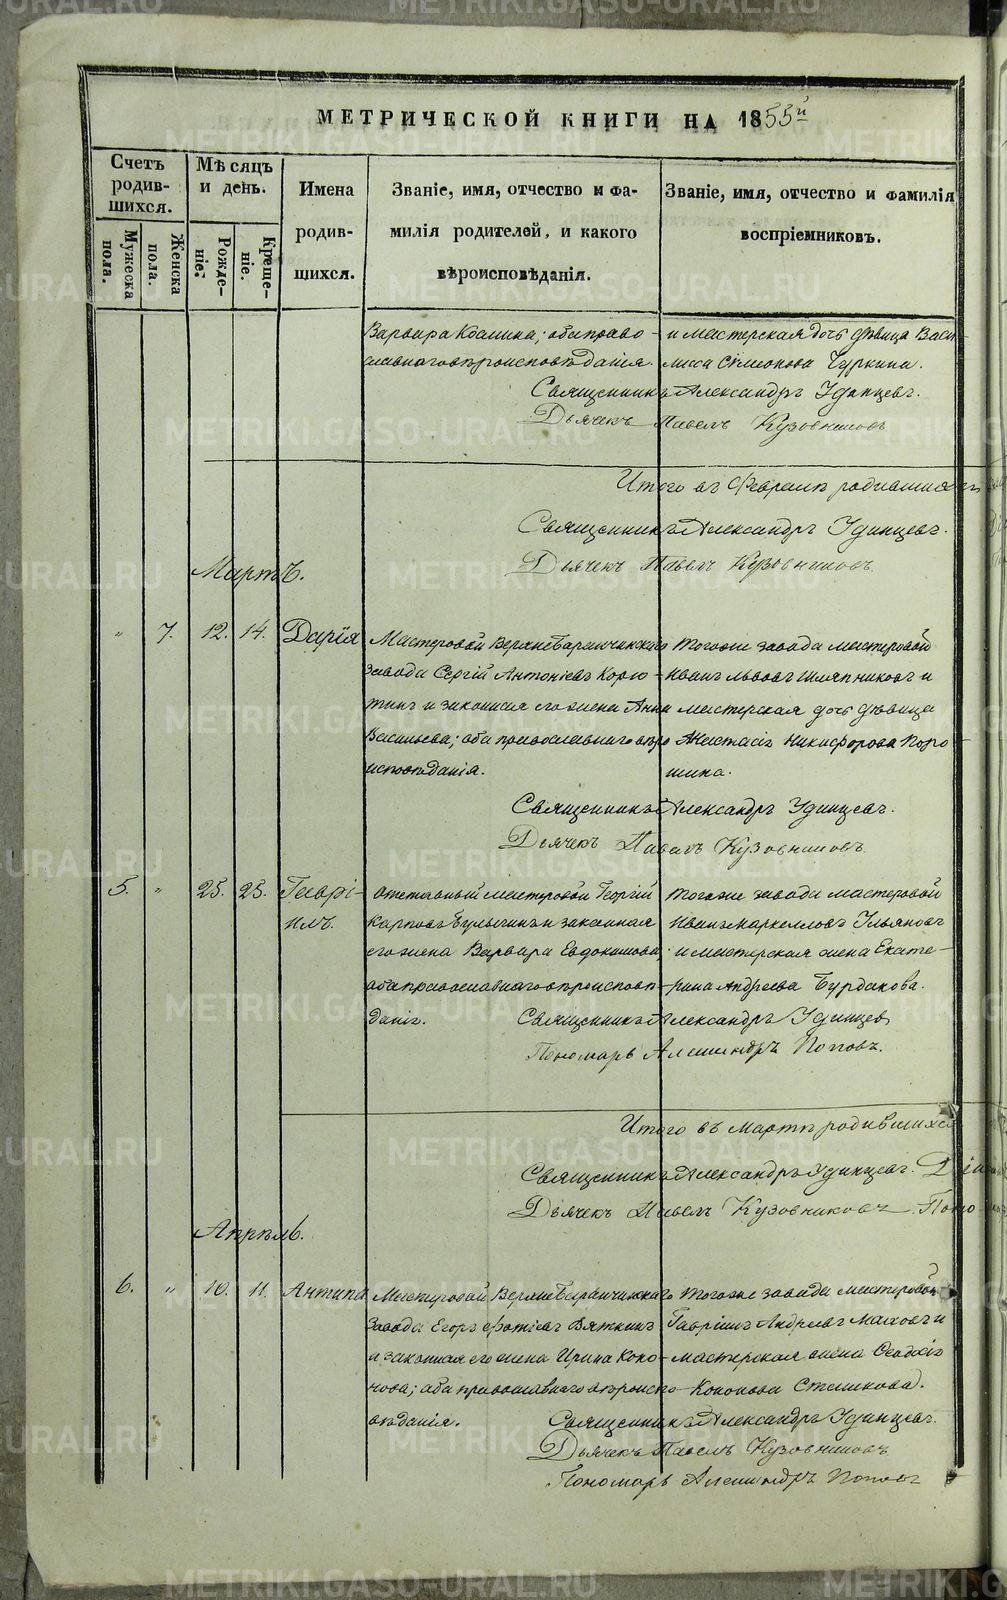 МЕТРИЧЕСКОЙ КНИГИ НА 1855й
Счетъ родив-шихся.
Мужеска пола.
Женска пола.
Мѣсяцъ и день.
Рожде-ніе.
Креще-ніе.
Имена родив-шихся.
Званіе, имя, отчество и фа-
милія родителей, и какого
вѣроисповѣданія.
Званіе, имя, отчество и фамилія
воспріемниковъ.
Варвара Козмина; оба право-
славнаго вѣроисповѣданія.
и мастерская дочь дѣвица Васи-
лиса Симеонова Чуркина.
Священникъ Александръ Удинцевъ.
Дьячекъ Павелъ Кузовниковъ
Итого въ Февралѣ родившихся
Священникъ Александръ Удинцевъ.
Дьячекъ Павелъ Кузовниковъ.
Мартъ.
" 7. 12. 14. Дарія
Мастеровой Верхнебаранчинскаго
завода Сергій Антоніевъ Коро-
тинъ и законная его жена Анна
Васильева; оба православнаго вѣро
исповѣданія.
Тогоже завода мастеровой
Иванъ Львовъ Шляпниковъ и
мастерская дочь дѣвица
Анастасія Никифорова Поро-
шина.
Священникъ Александръ Удинцевъ.
Дьячекъ Павелъ Кузовниковъ.
5. " 25. 25. Гаврі-
илъ.
мастеровой Георгій
Карповъ и законная
его жена Варвара Евдокимова;
оба православнаго вѣроисповѣ-
данія.
Тогоже завода мастеровой
Иванъ Маркелловъ Ульяновъ
и мастерская жена Екате-
рина Андреева Бурдакова.
Священникъ Александръ Удинцевъ
Пономарь Александръ Поповъ.
Итого въ Мартѣ родившихся
Священникъ Александръ Удинцевъ.
Дьячекъ Павелъ Кузовниковъ
Апрѣль.
6. " 10. 11. Антипа
Мастеровой Верхнебаранчинскаго
завода Егоръ Фотіевъ Вяткинъ
и законная его жена Ирина Коно-
нова; оба православнаго вѣроиспо-
вѣданія.
Тогоже завода мастеровой
Гавріилъ Андреевъ Маховъ и
мастерская жена
Кононова Сташкова.
Священникъ Александръ Удинцевъ.
Дьячекъ Павелъ Кузовниковъ
Пономарь Александръ Поповъ
METRIKI.GASO-URAL.RU